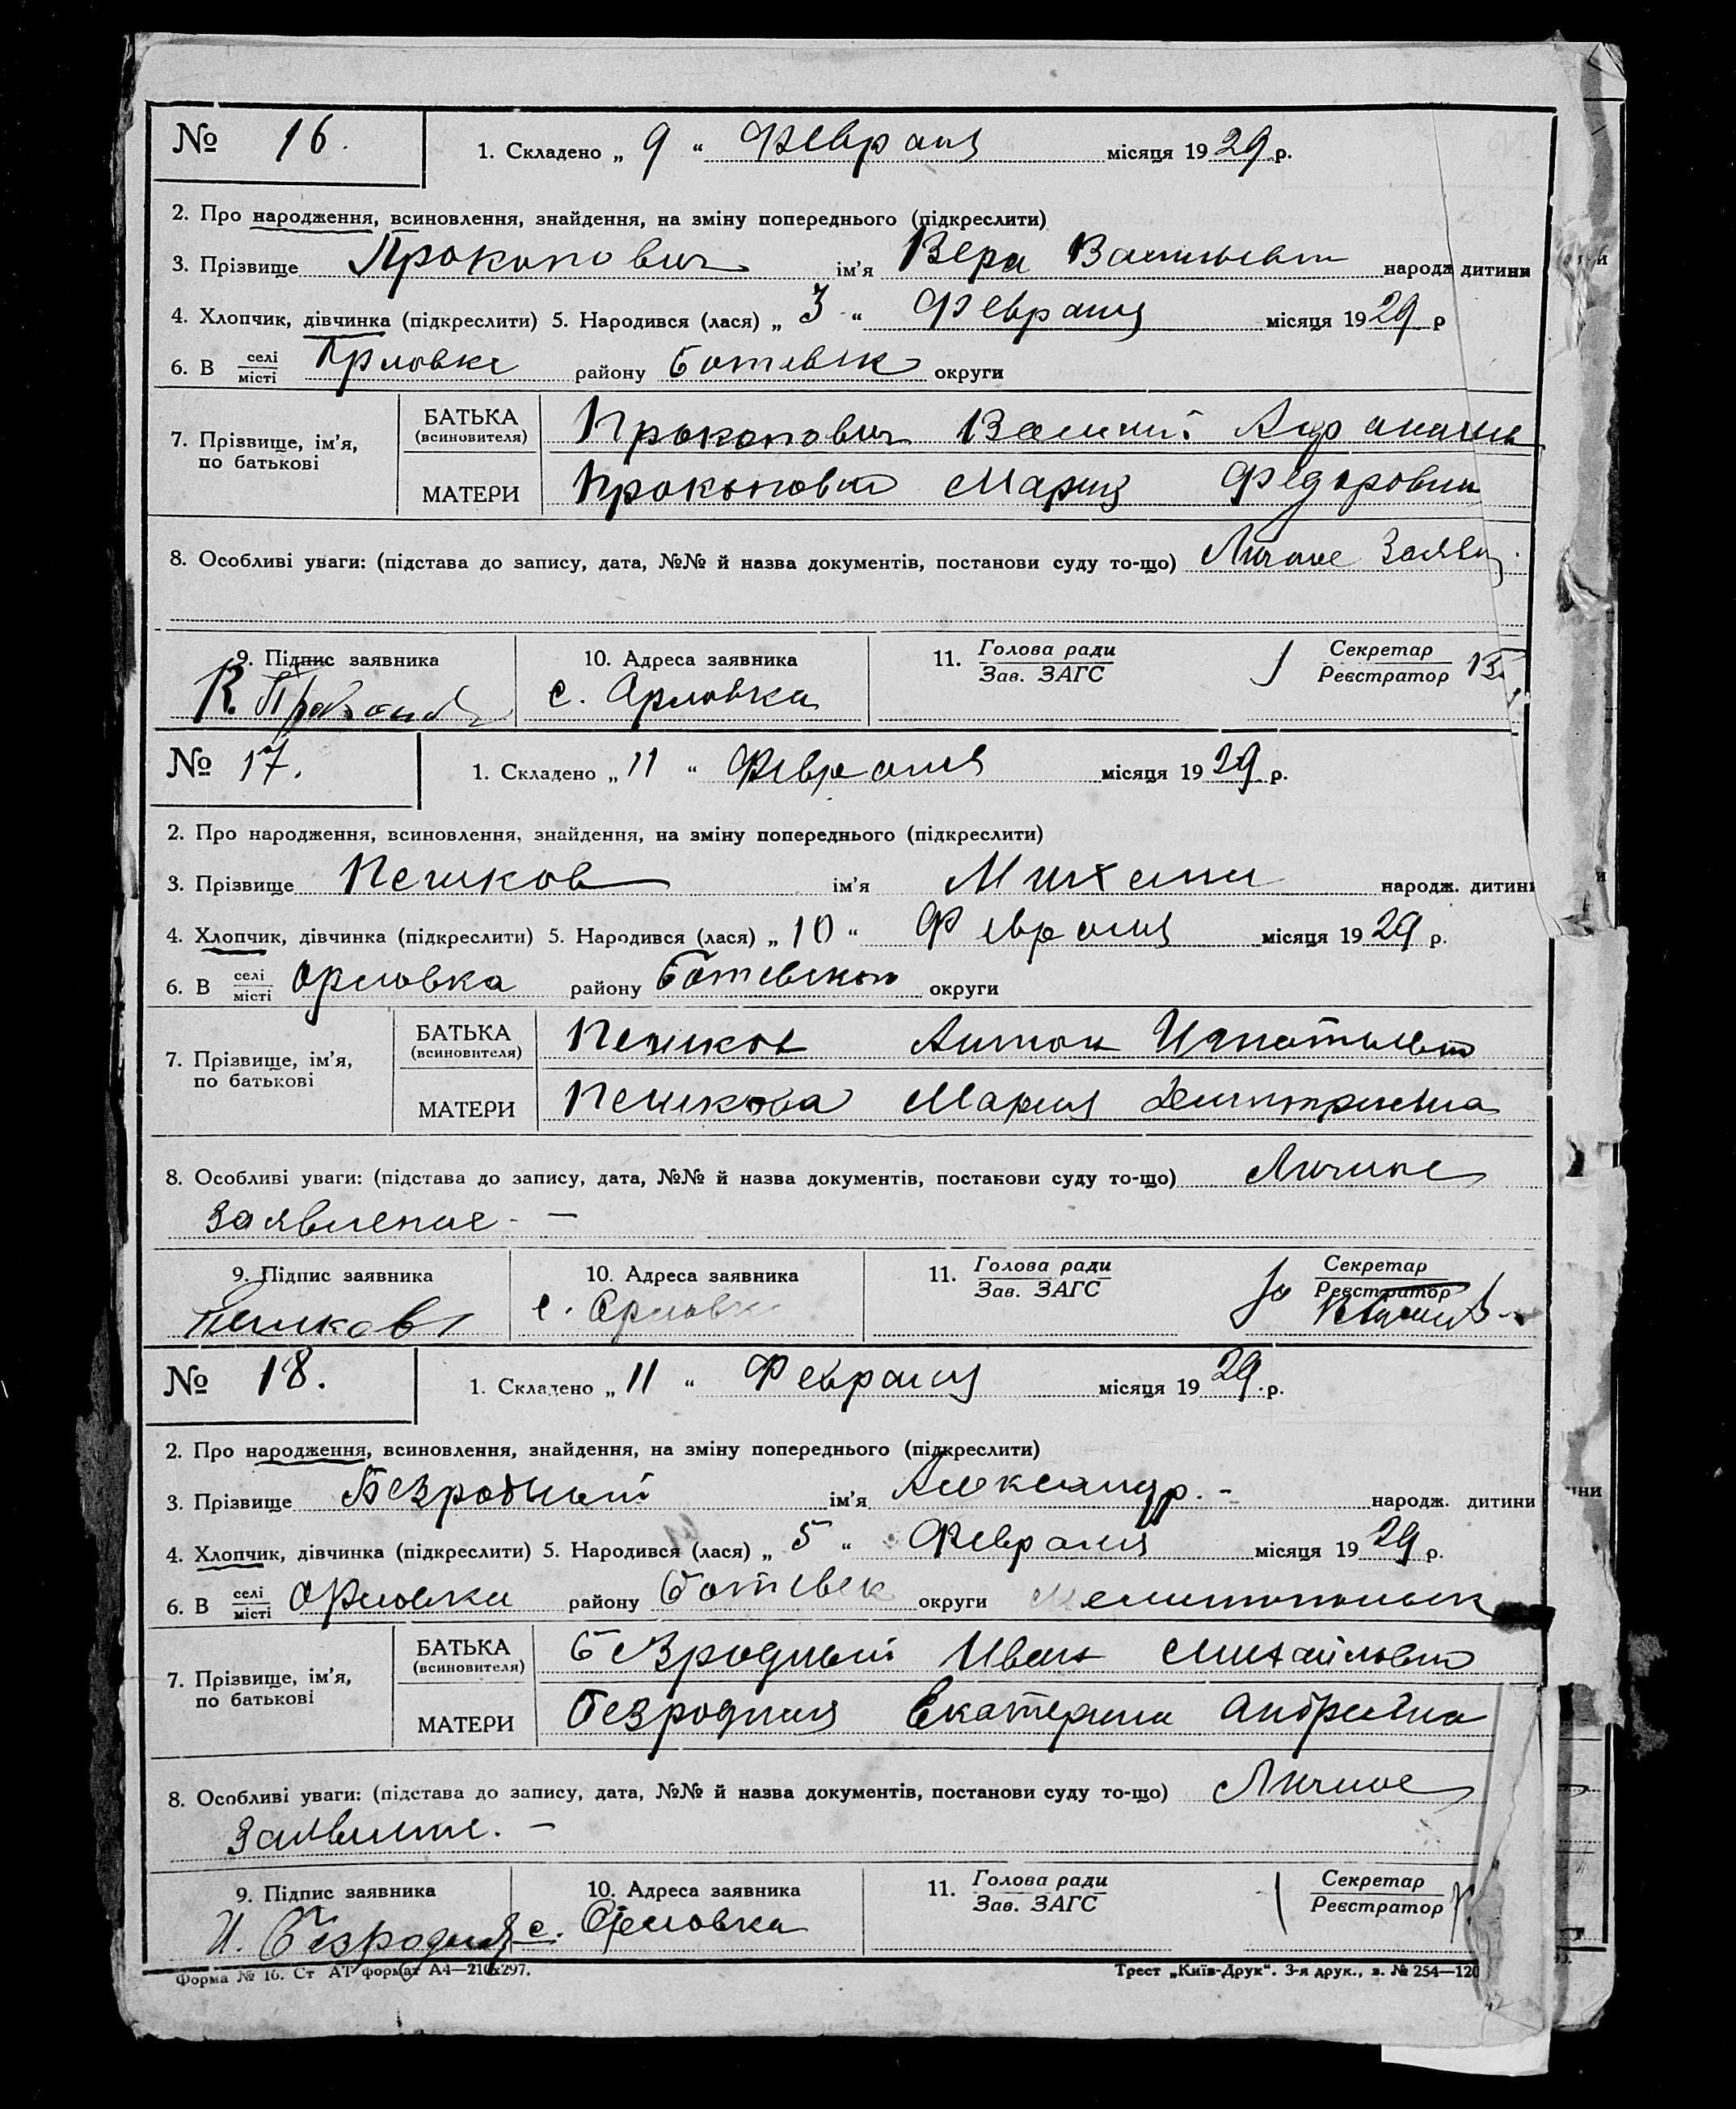 № 16. 1. Складено „ 9 “ Февраля місяця 1929 р.
2. Про народження, всиновлення, знайдення, на зміну попереднього (підкреслити)
3. Прізвище Прокопович ім’я Вера народж дитини
4. Хлопчик, дівчинка (підкреслити) 5. Народився (лася) „ 3 “ Февраля місяця 1929 р
6. В селі/місті Орловке району Ботевск округи
7. Прізвище, ім’я, по батькові
БАТЬКА (всиновителя) Прокопович Василий
МАТЕРИ Мария
8. Особливі уваги: (підстава до запису, дата, №№ й назва документів, постанови суду то-що) Личное Заявл
9. Підпис заявника 10. Адреса заявника 11. Голова ради/Зав. ЗАГС Секретар/Реєстратор
с. Орловка
№ 17. 1. Складено „ 11 “ Февраля місяця 1929 р.
2. Про народження, всиновлення, знайдення, на зміну попереднього (підкреслити)
3. Прізвище Пешков ім’я Михаил народж. дитини
4. Хлопчик, дівчинка (підкреслити) 5. Народився (лася) „ 10 “ Февраля місяця 1929 р.
6. В селі/місті Орловка району Ботевском округи
7. Прізвище, ім’я, по батькові
БАТЬКА (всиновителя) Пешков Антон Игнатьев
МАТЕРИ Пешкова Мария Дмитриевна
8. Особливі уваги: (підстава до запису, дата, №№ й назва документів, постанови суду то-що) Личное
Заявление. —
9. Підпис заявника 10. Адреса заявника 11. Голова ради/Зав. ЗАГС Секретар/Реєстратор
Пешков с. Орловка
№ 18. 1. Складено „ 11 “ Февраля місяця 1929 р.
2. Про народження, всиновлення, знайдення, на зміну попереднього (підкреслити)
3. Прізвище Безродный ім’я Александр. - народж. дитини
4. Хлопчик, дівчинка (підкреслити) 5. Народився (лася) „ 5 “ Февраля місяця 1929 р.
6. В селі/місті Орловка району Ботевск округи Мелитопольск
7. Прізвище, ім’я, по батькові
БАТЬКА (всиновителя) Безродный Иван Михайлович
МАТЕРИ Безродная Екатерина Андреевна
8. Особливі уваги: (підстава до запису, дата, №№ й назва документів, постанови суду то-що) Личное
Заявление. —
9. Підпис заявника 10. Адреса заявника 11. Голова ради/Зав. ЗАГС Секретар/Реєстратор
И. Безродный с. Орловка
Форма № 16. Ст АТ формат А4—210x297. Трест „Київ-Друк“. 3-я друк., з. № 254—120